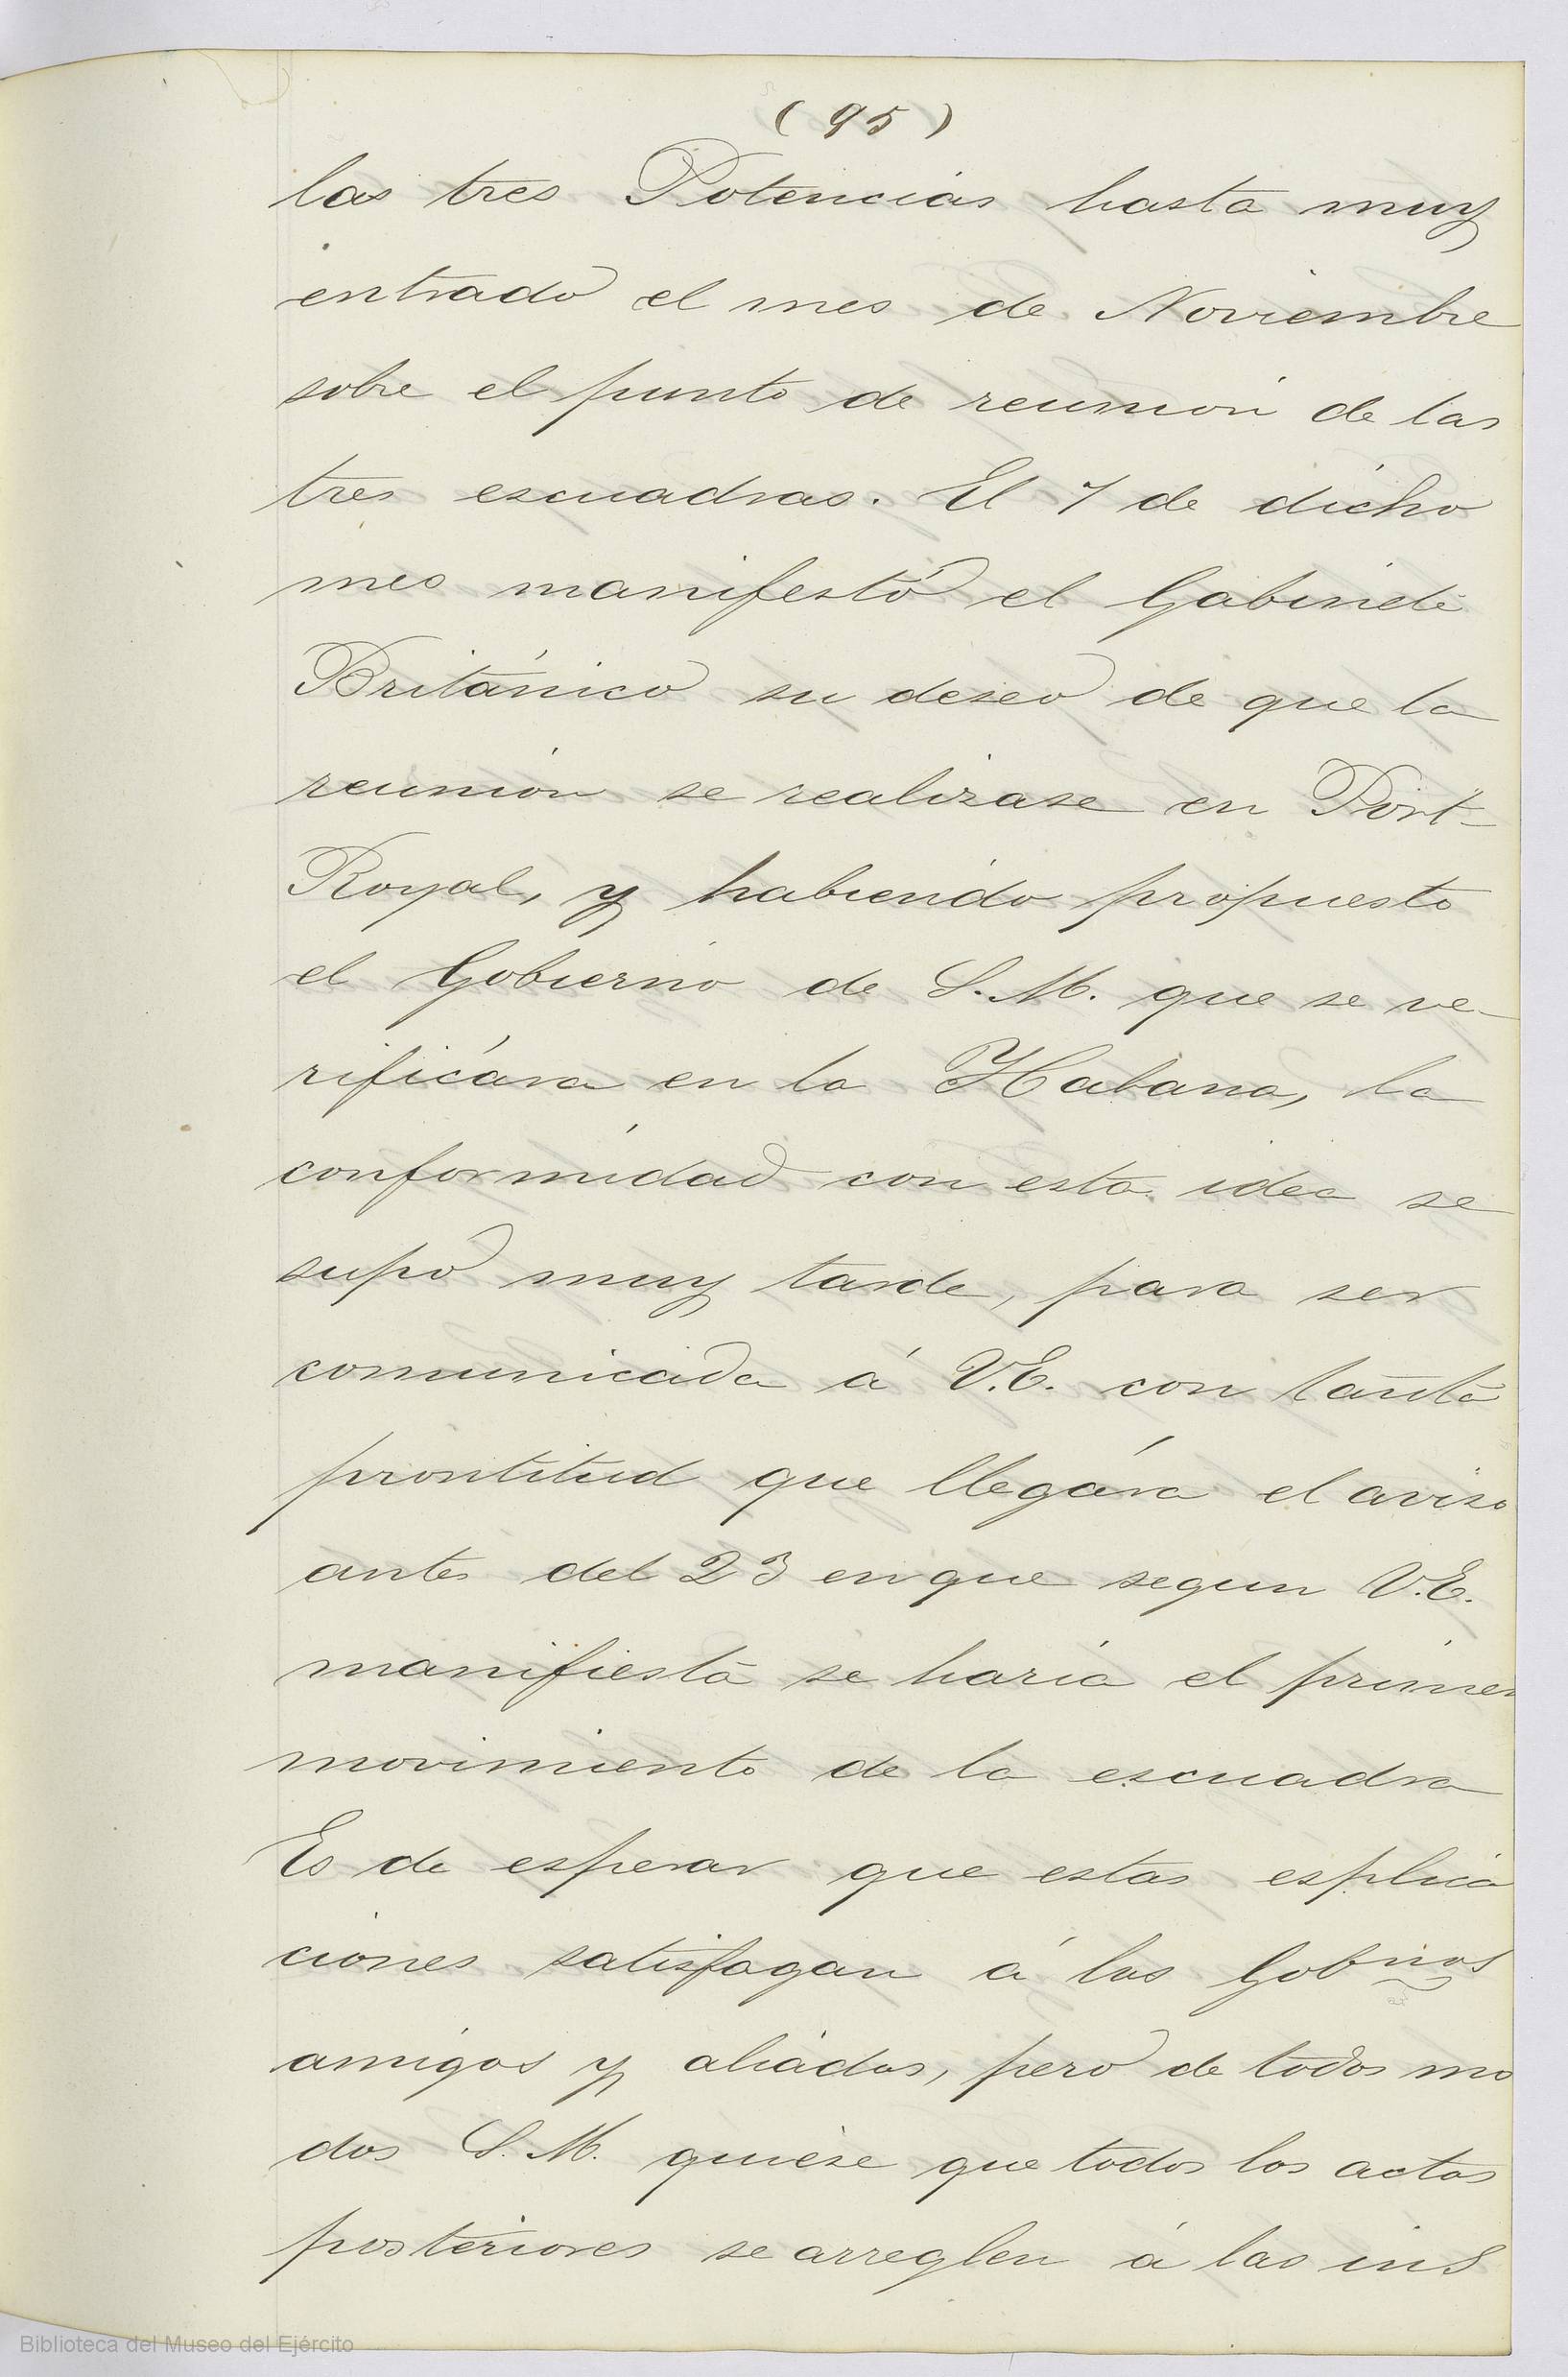 (95)
las tres Potencias hasta muy
entrado el mes de Noviembre
sobre el punto de reunion de las
tres escuadras. El 7 de dicho
mes manifestó el Gabinete
Británico su deseo de que la
reunión se realizase en Port-
Royal, y habiendo propuesto
el Gobierno de S.M. que se ve-
rificára en la Habana, la
conformidad con esta idea se
supo muy tarde, para ser
comunicada á V.E. con tanta
prontitud que llegára el aviso
antes del 23 en que segun V.E.
manifiesta se haria el primer
movimiento de la escuadra
Es de esperar que estas esplica
ciones satisfagan á los Gobnos
amigos y aliados, pero de todos mo
dos S.M. quiere que todos los actos
posteriores se arreglen á las ins
Biblioteca del Museo del Ejército